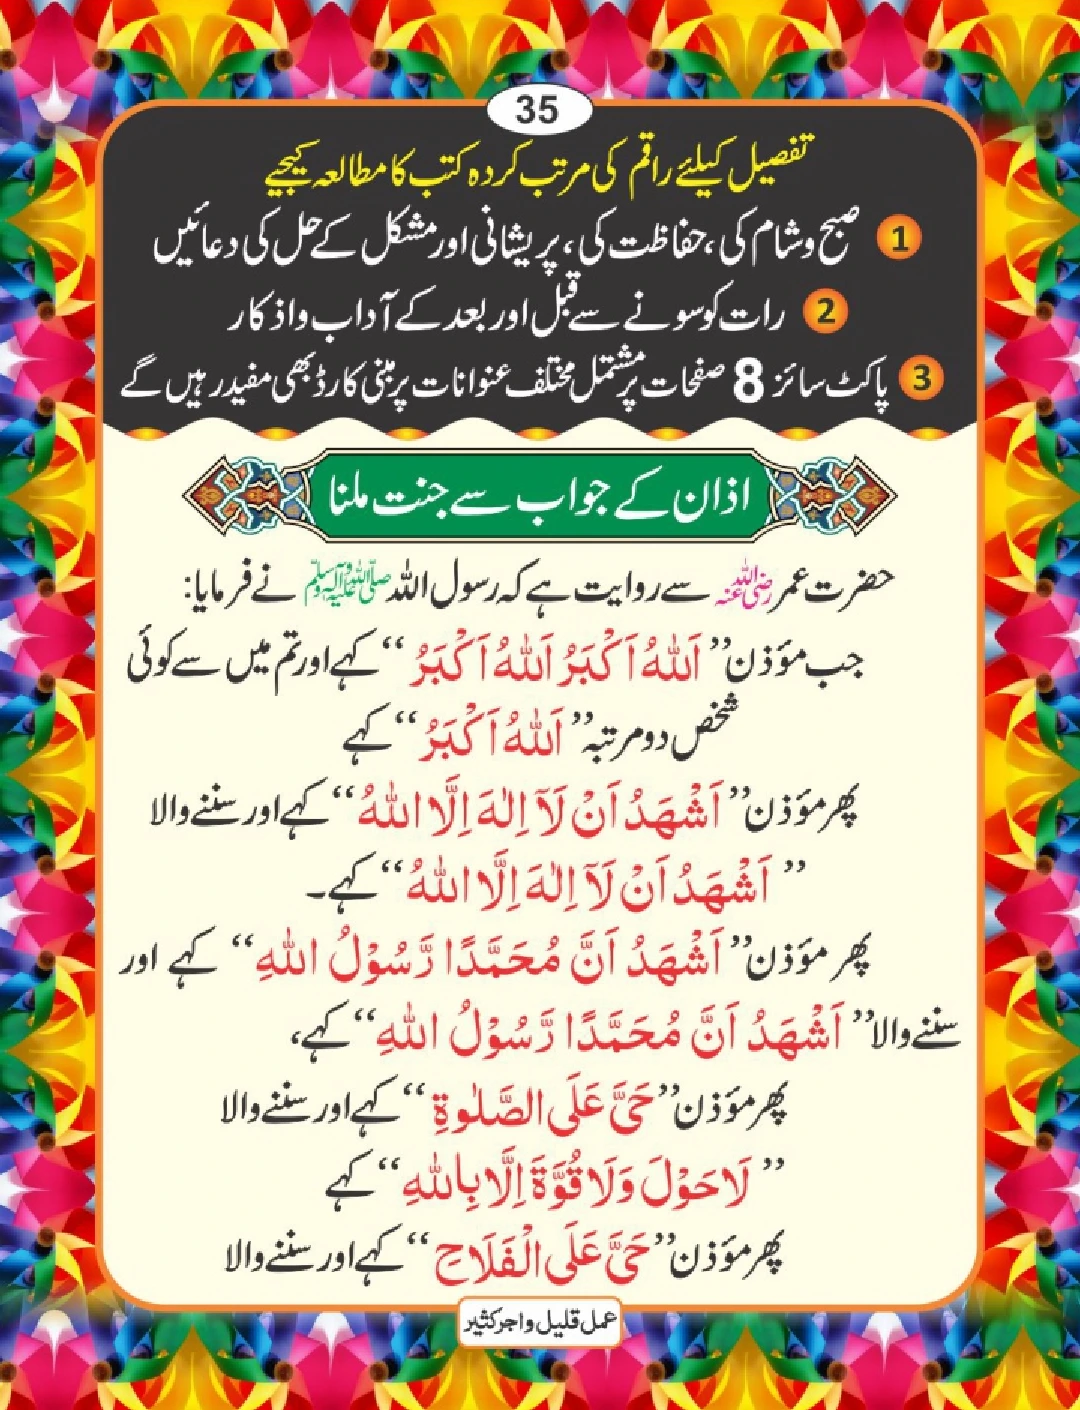 35
تفصیل کیلئے راقم کی مرتب کردہ کتب کا مطالعہ کیجیے
1 صبح وشام کی، حفاظت کی، پریشانی اور مشکل کے حل کی دعائیں
2 رات کو سونے سے قبل اور بعد کے آداب واذکار
3 پاکٹ سائز 8 صفحات پر مشتمل مختلف عنوانات پر مبنی کارڈ بھی مفید رہیں گے
اذان کے جواب سے جنت ملنا
حضرت عمر رضی اللہ عنہ سے روایت ہے کہ رسول اللہ صلی اللہ علیہ وآلہ وسلم نے فرمایا:
جب مؤذن ”اَللّٰهُ اَكْبَرُ اَللّٰهُ اَكْبَرُ“ کہے اور تم میں سے کوئی
شخص دو مرتبہ ”اَللّٰهُ اَكْبَرُ“ کہے
پھر مؤذن ”اَشْهَدُ اَنْ لَآ اِلٰهَ اِلَّا اللّٰهُ“ کہے اور سننے والا
”اَشْهَدُ اَنْ لَآ اِلٰهَ اِلَّا اللّٰهُ“ کہے۔
پھر مؤذن ”اَشْهَدُ اَنَّ مُحَمَّدًا رَّسُوْلُ اللّٰهِ“ کہے اور
سننے والا ”اَشْهَدُ اَنَّ مُحَمَّدًا رَّسُوْلُ اللّٰهِ“ کہے،
پھر مؤذن ”حَیَّ عَلَی الصَّلٰوةِ“ کہے اور سننے والا
”لَا حَوْلَ وَلَا قُوَّةَ اِلَّا بِاللّٰهِ“ کہے
پھر مؤذن ”حَیَّ عَلَی الْفَلَاحِ“ کہے اور سننے والا
عمل قلیل واجر کثیر